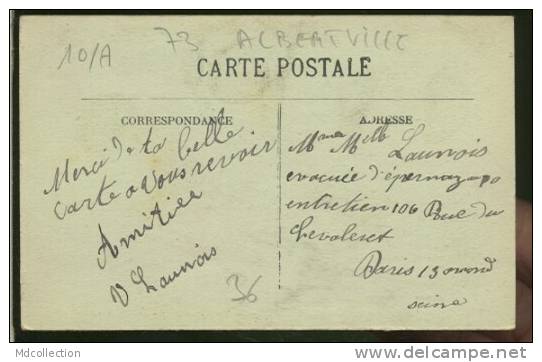 10/A
73 ALBERTVILLE
CARTE POSTALE
CORRESPONDANCE
ADRESSE
Merci de ta belle
carte a vous revoir
Amitiee
V Launois
36
Mme Melle Launois
evacuée d'épernay
entretien 106 Rue du
Chevaleret
Paris 13
seine
Mdcollection
http://mdcollection.delcampe.net